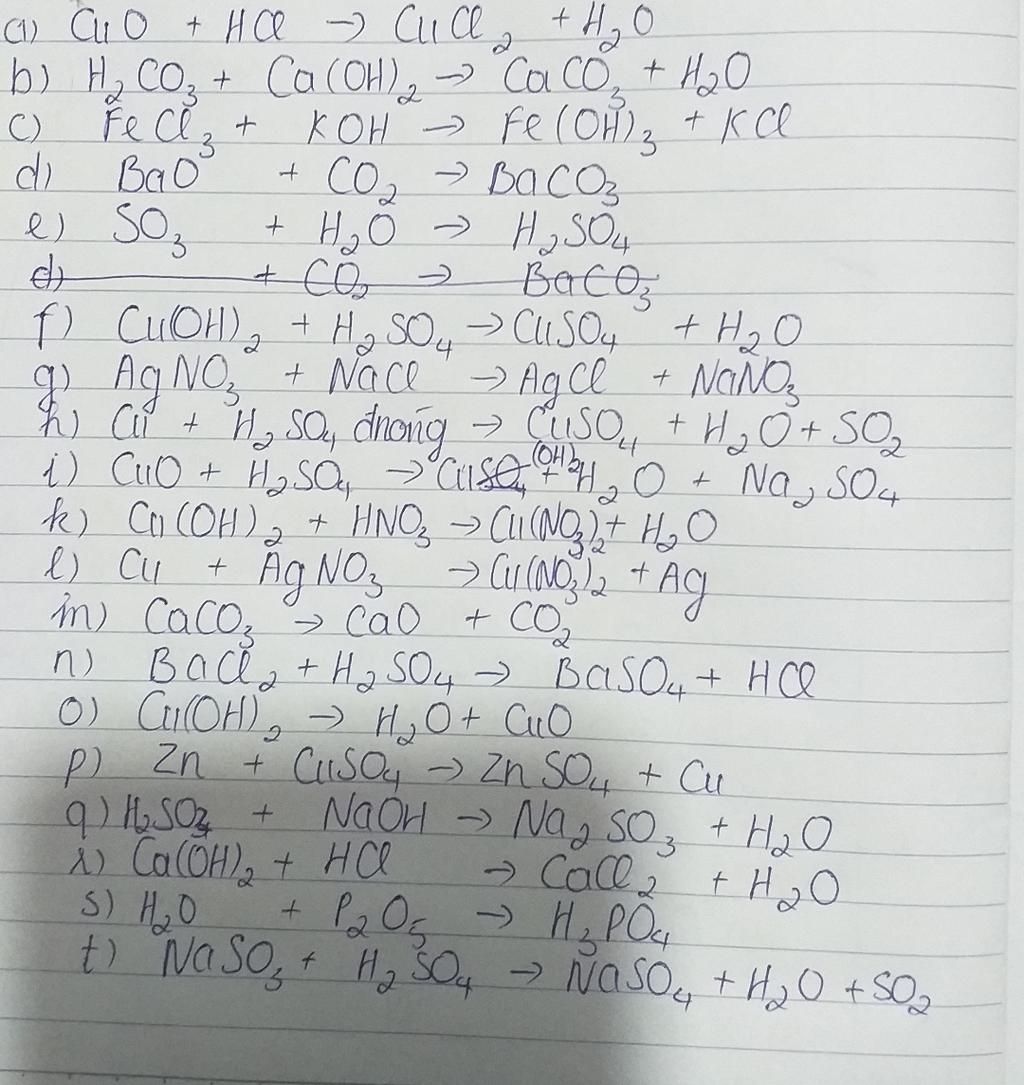 a) CuO + HCl → CuCl₂ + H₂O
b) H₂CO₃ + Ca(OH)₂ → CaCO₃ + H₂O
c) FeCl₃ + KOH → Fe(OH)₃ + KCl
d) BaO + CO₂ → BaCO₃
e) SO₃ + H₂O → H₂SO₄
d) + CO₂ → BaCO₃
f) Cu(OH)₂ + H₂SO₄ → CuSO₄ + H₂O
g) AgNO₃ + NaCl → AgCl + NaNO₃
h) Cu + H₂SO₄ đnóng → CuSO₄ + H₂O + SO₂
i) CuO + H₂SO₄ → Cu(OH)₂ + H₂O + Na₂SO₄
k) Cu(OH)₂ + HNO₃ → Cu(NO₃)₂ + H₂O
l) Cu + AgNO₃ → Cu(NO₃)₂ + Ag
m) CaCO₃ → CaO + CO₂
n) BaCl₂ + H₂SO₄ → BaSO₄ + HCl
o) Cu(OH)₂ → H₂O + CuO
p) Zn + CuSO₄ → ZnSO₄ + Cu
q) H₂SO₃ + NaOH → Na₂SO₃ + H₂O
r) Ca(OH)₂ + HCl → CaCl₂ + H₂O
s) H₂O + P₂O₅ → H₃PO₄
t) NaSO₃ + H₂SO₄ → NaSO₄ + H₂O + SO₂